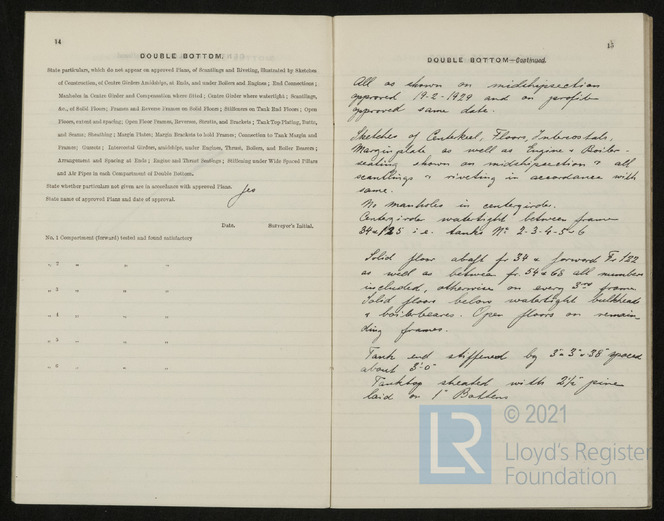 14
DOUBLE BOTTOM.
State particulars, which do not appear on approved Plans, of Scantlings and Riveting, Illustrated by Sketches
of Construction, of Centre Girders Amidships, at Ends, and under Boilers and Engines; End Connections;
Manholes in Centre Girder and Compensation where fitted; Centre Girder where watertight; Scantlings,
&c., of Solid Floors; Frames and Reverse Frames on Solid Floors; Stiffeners on Tank End Floors; Open
Floors, extent and spacing; Open Floor Frames, Reverses, Struts, and Brackets; Tank Top Plating, Butts,
and Seams; Sheathing; Margin Plates; Margin Brackets to hold Frames; Connection to Tank Margin and
Frames; Gussets; Intercostal Girders, amidships, under Engines, Thrust, Boilers, and Boiler Bearers;
Arrangement and Spacing at Ends; Engine and Thrust Seatings; Stiffening under Wide Spaced Pillars
and Air Pipes in each Compartment of Double Bottom.
State whether particulars not given are in accordance with approved Plans. Yes
State name of approved Plans and date of approval.
Date. Surveyor's Initial.
No. 1 Compartment (forward) tested and found satisfactory
„ 2 „ „ „
„ 3 „ „ „
„ 4 „ „ „
„ 5 „ „ „
„ 6 „ „ „
15
DOUBLE BOTTOM—Continued.
All as shown in midshipsection
approved 19-2-1929 and on profile
approved same date.
Sketches of Centerkeel, Floors, Intercostals,
Marginplate as well as Engine & Boiler-
seating shown on midshipsection & all
scantlings & riveting in accordance with
same.
No manholes in centergirder.
Centergirder watertight between frame
34 & 125 i.e. tanks No 2-3-4-5-6
Solid floor abaft fr 34 & forward Fr 122
as well as between fr. 54 & 68 all numbers
included, otherwise on every 3rd frame.
Solid floors below watertight bulkheads
& boilerbearers. Open floors on remain-
ding frames.
Tank end stiffened by 3" 3" .38" spaced
about 3'-0"
Tanktop sheated with 2½" pine
laid on 1" Battens
LR
© 2021
Lloyd's Register
Foundation